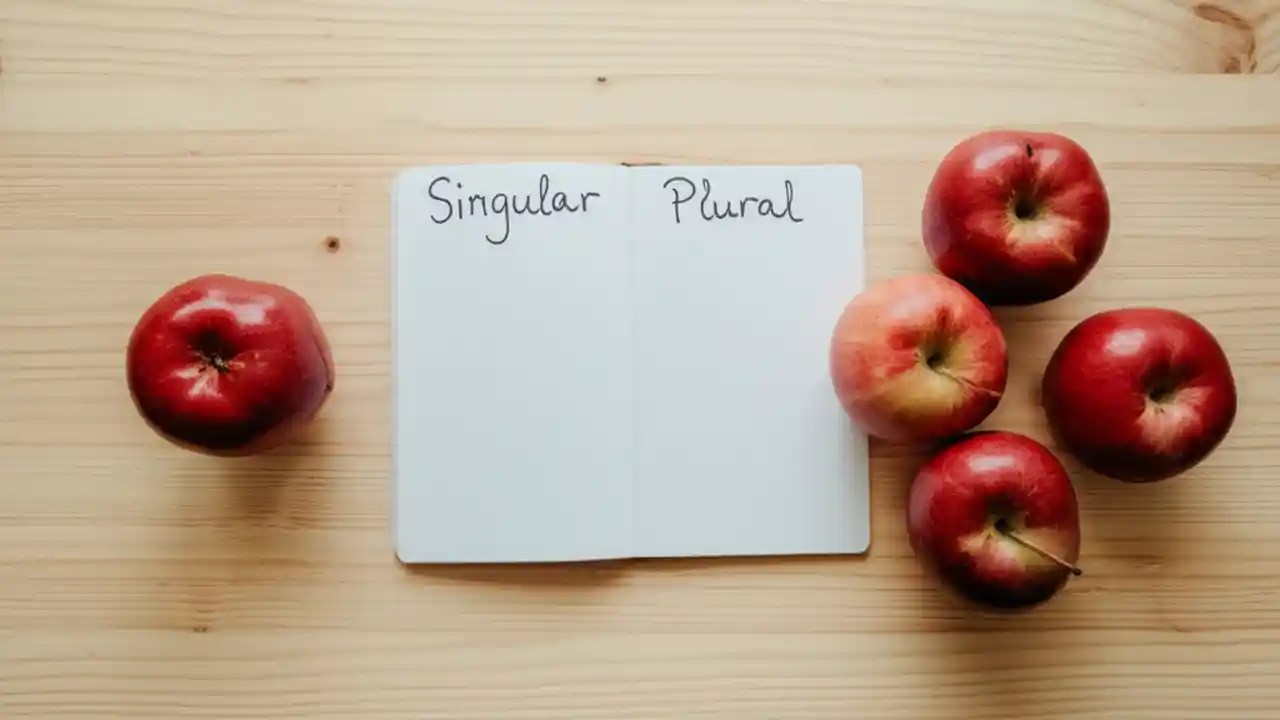 Singular Plural